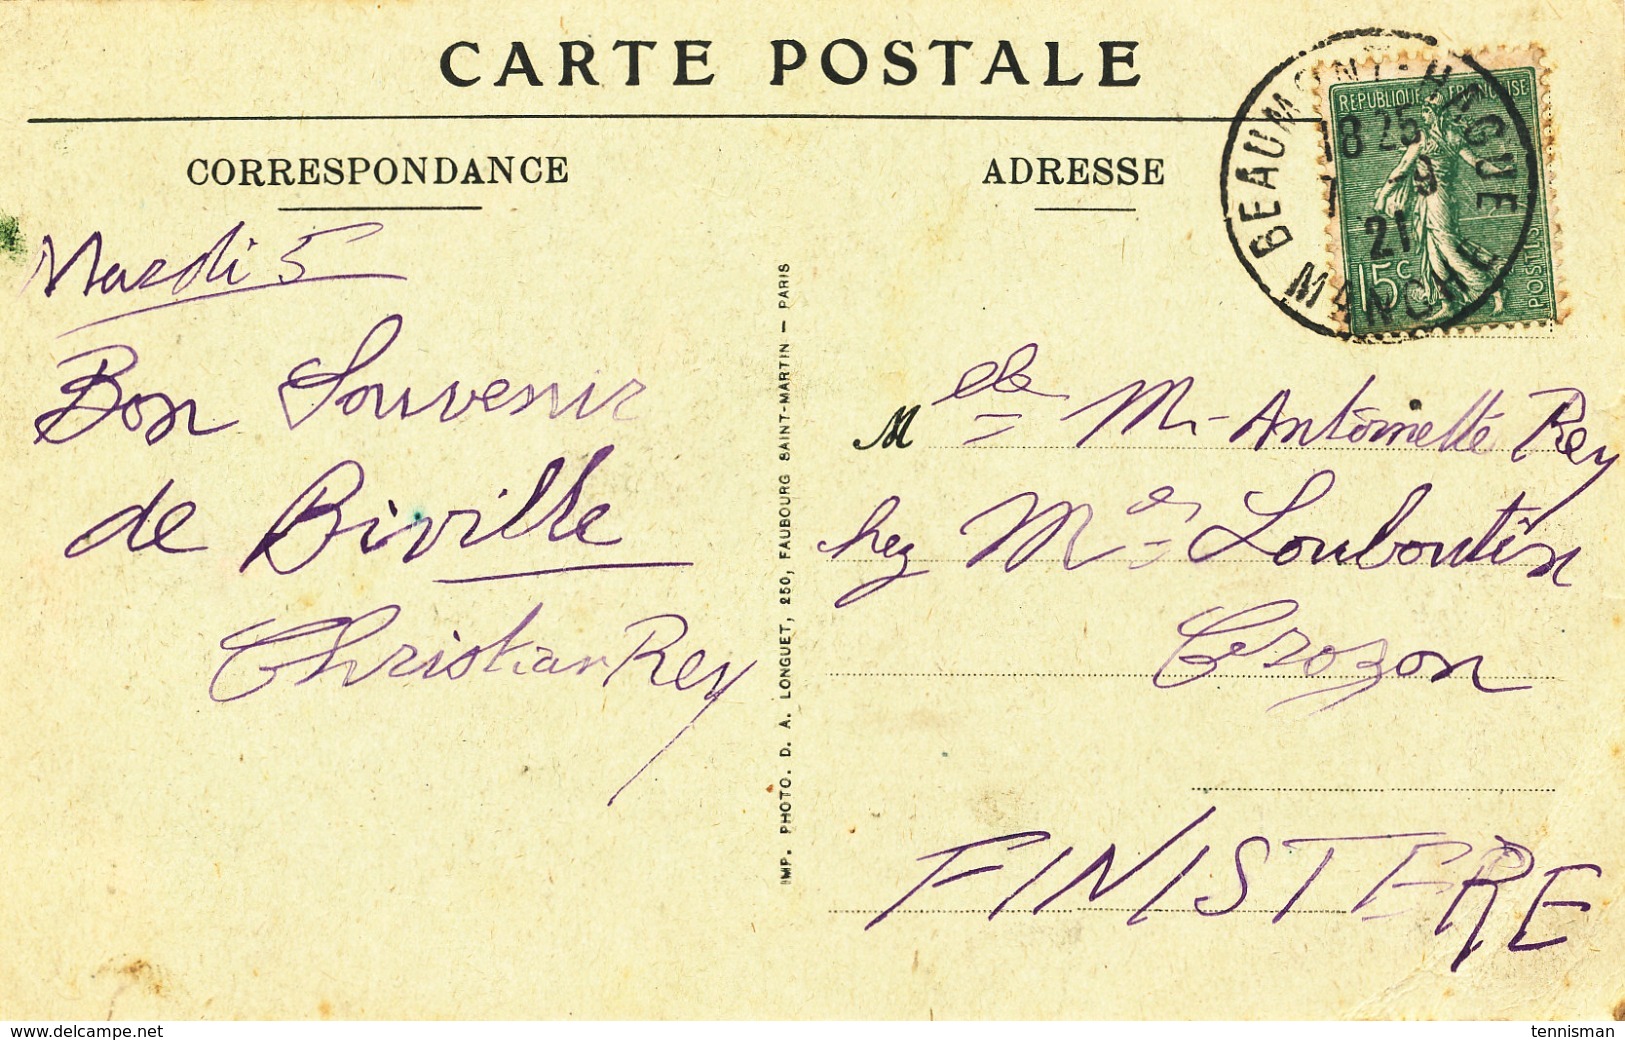 CARTE POSTALE
CORRESPONDANCE
ADRESSE
BEAUMONT-HAGUE
18 25
7 - 9
21
MANCHE
REPUBLIQUE FRANÇAISE
15c
POSTES
Mardi 5
Bon Souvenir
de Biville
Christian Rey
IMP. PHOTO. D. A. LONGUET, 250, FAUBOURG SAINT-MARTIN — PARIS
Melle M-Antoinette Rey
chez Mde Louboutin
Crozon
FINISTERE
www.delcampe.net
tennisman